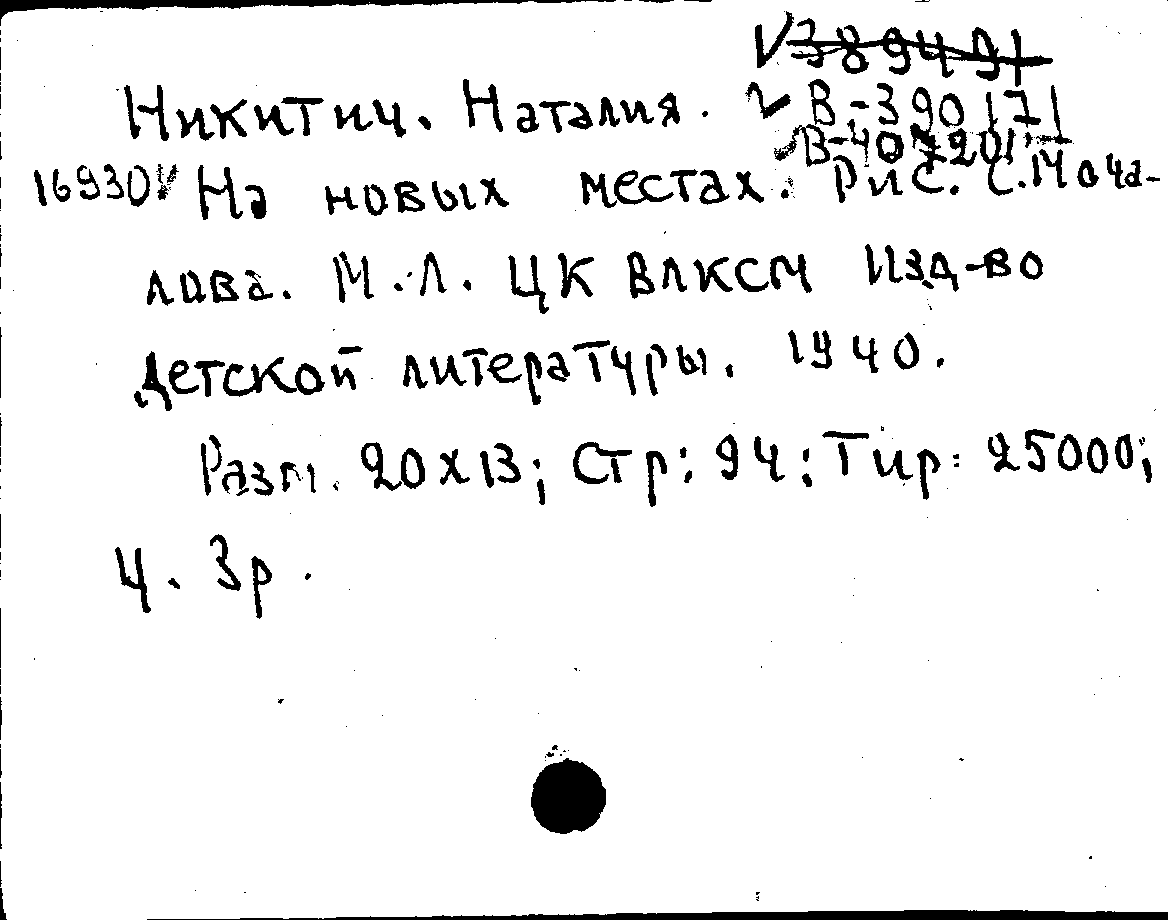 389491
Никитич. Наталия. В-390171
В-407201
16930 На новых местах. Рис. С. Моча-
лова. М.Л. ЦК ВЛКСМ Изд-во
детской литературы. 1940.
Разм. 20х13; Стр: 94; Тир: 25000;
Ц. 3р.